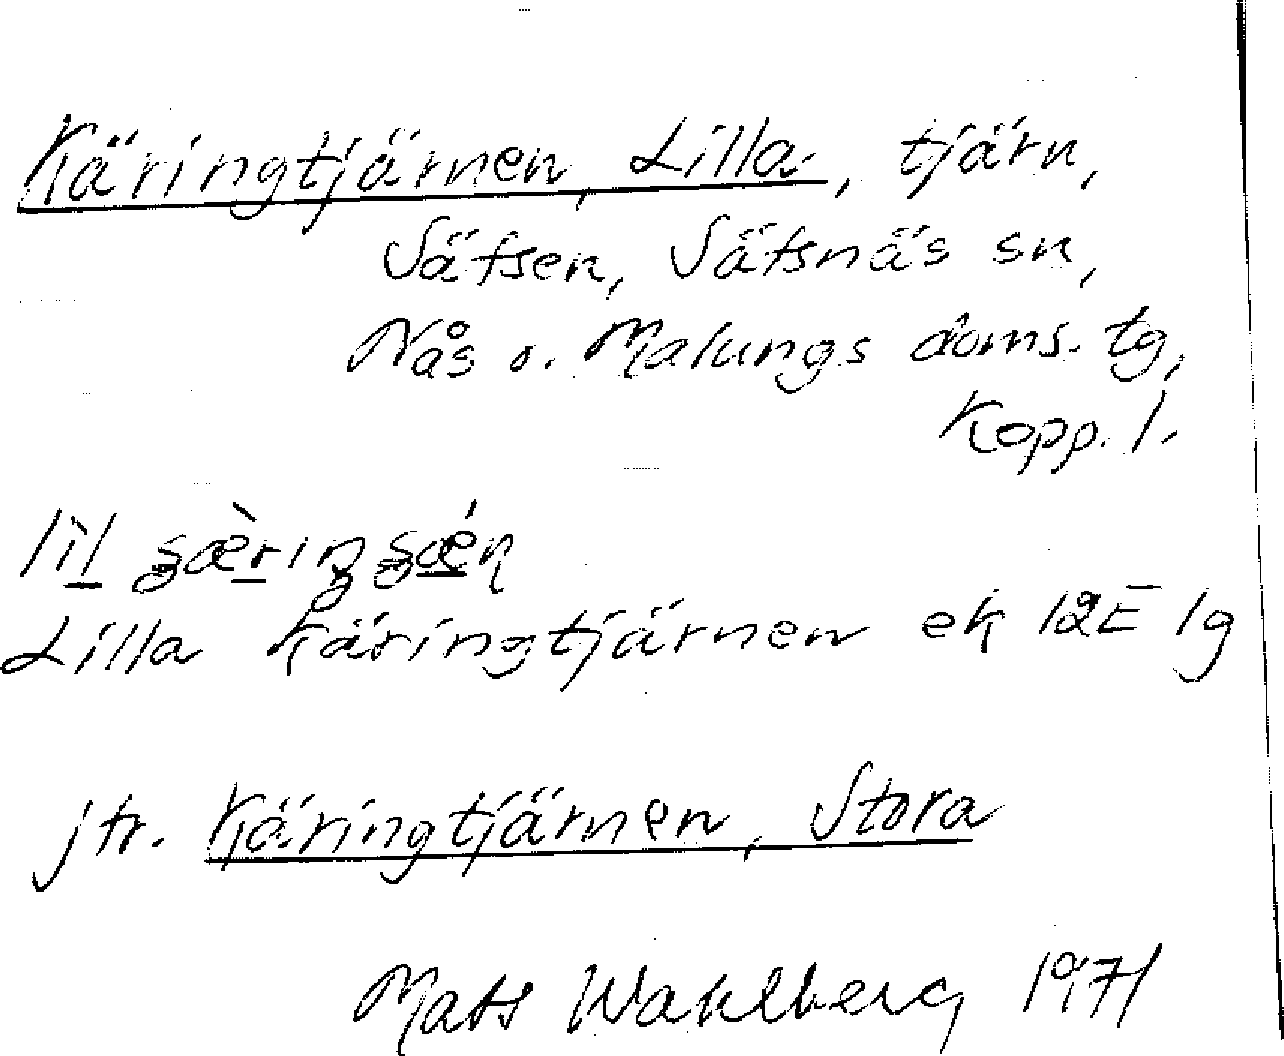 Käringtjärnen, Lilla, tjärn,
Säfsen, Säfsnäs sn,
Nås o. Malungs doms. tg,
Kopp. l.
lìl
Lilla Käringtjärnen ek 12E 1g
jfr. Käringtjärnen, Stora
Mats Wahlberg 1971